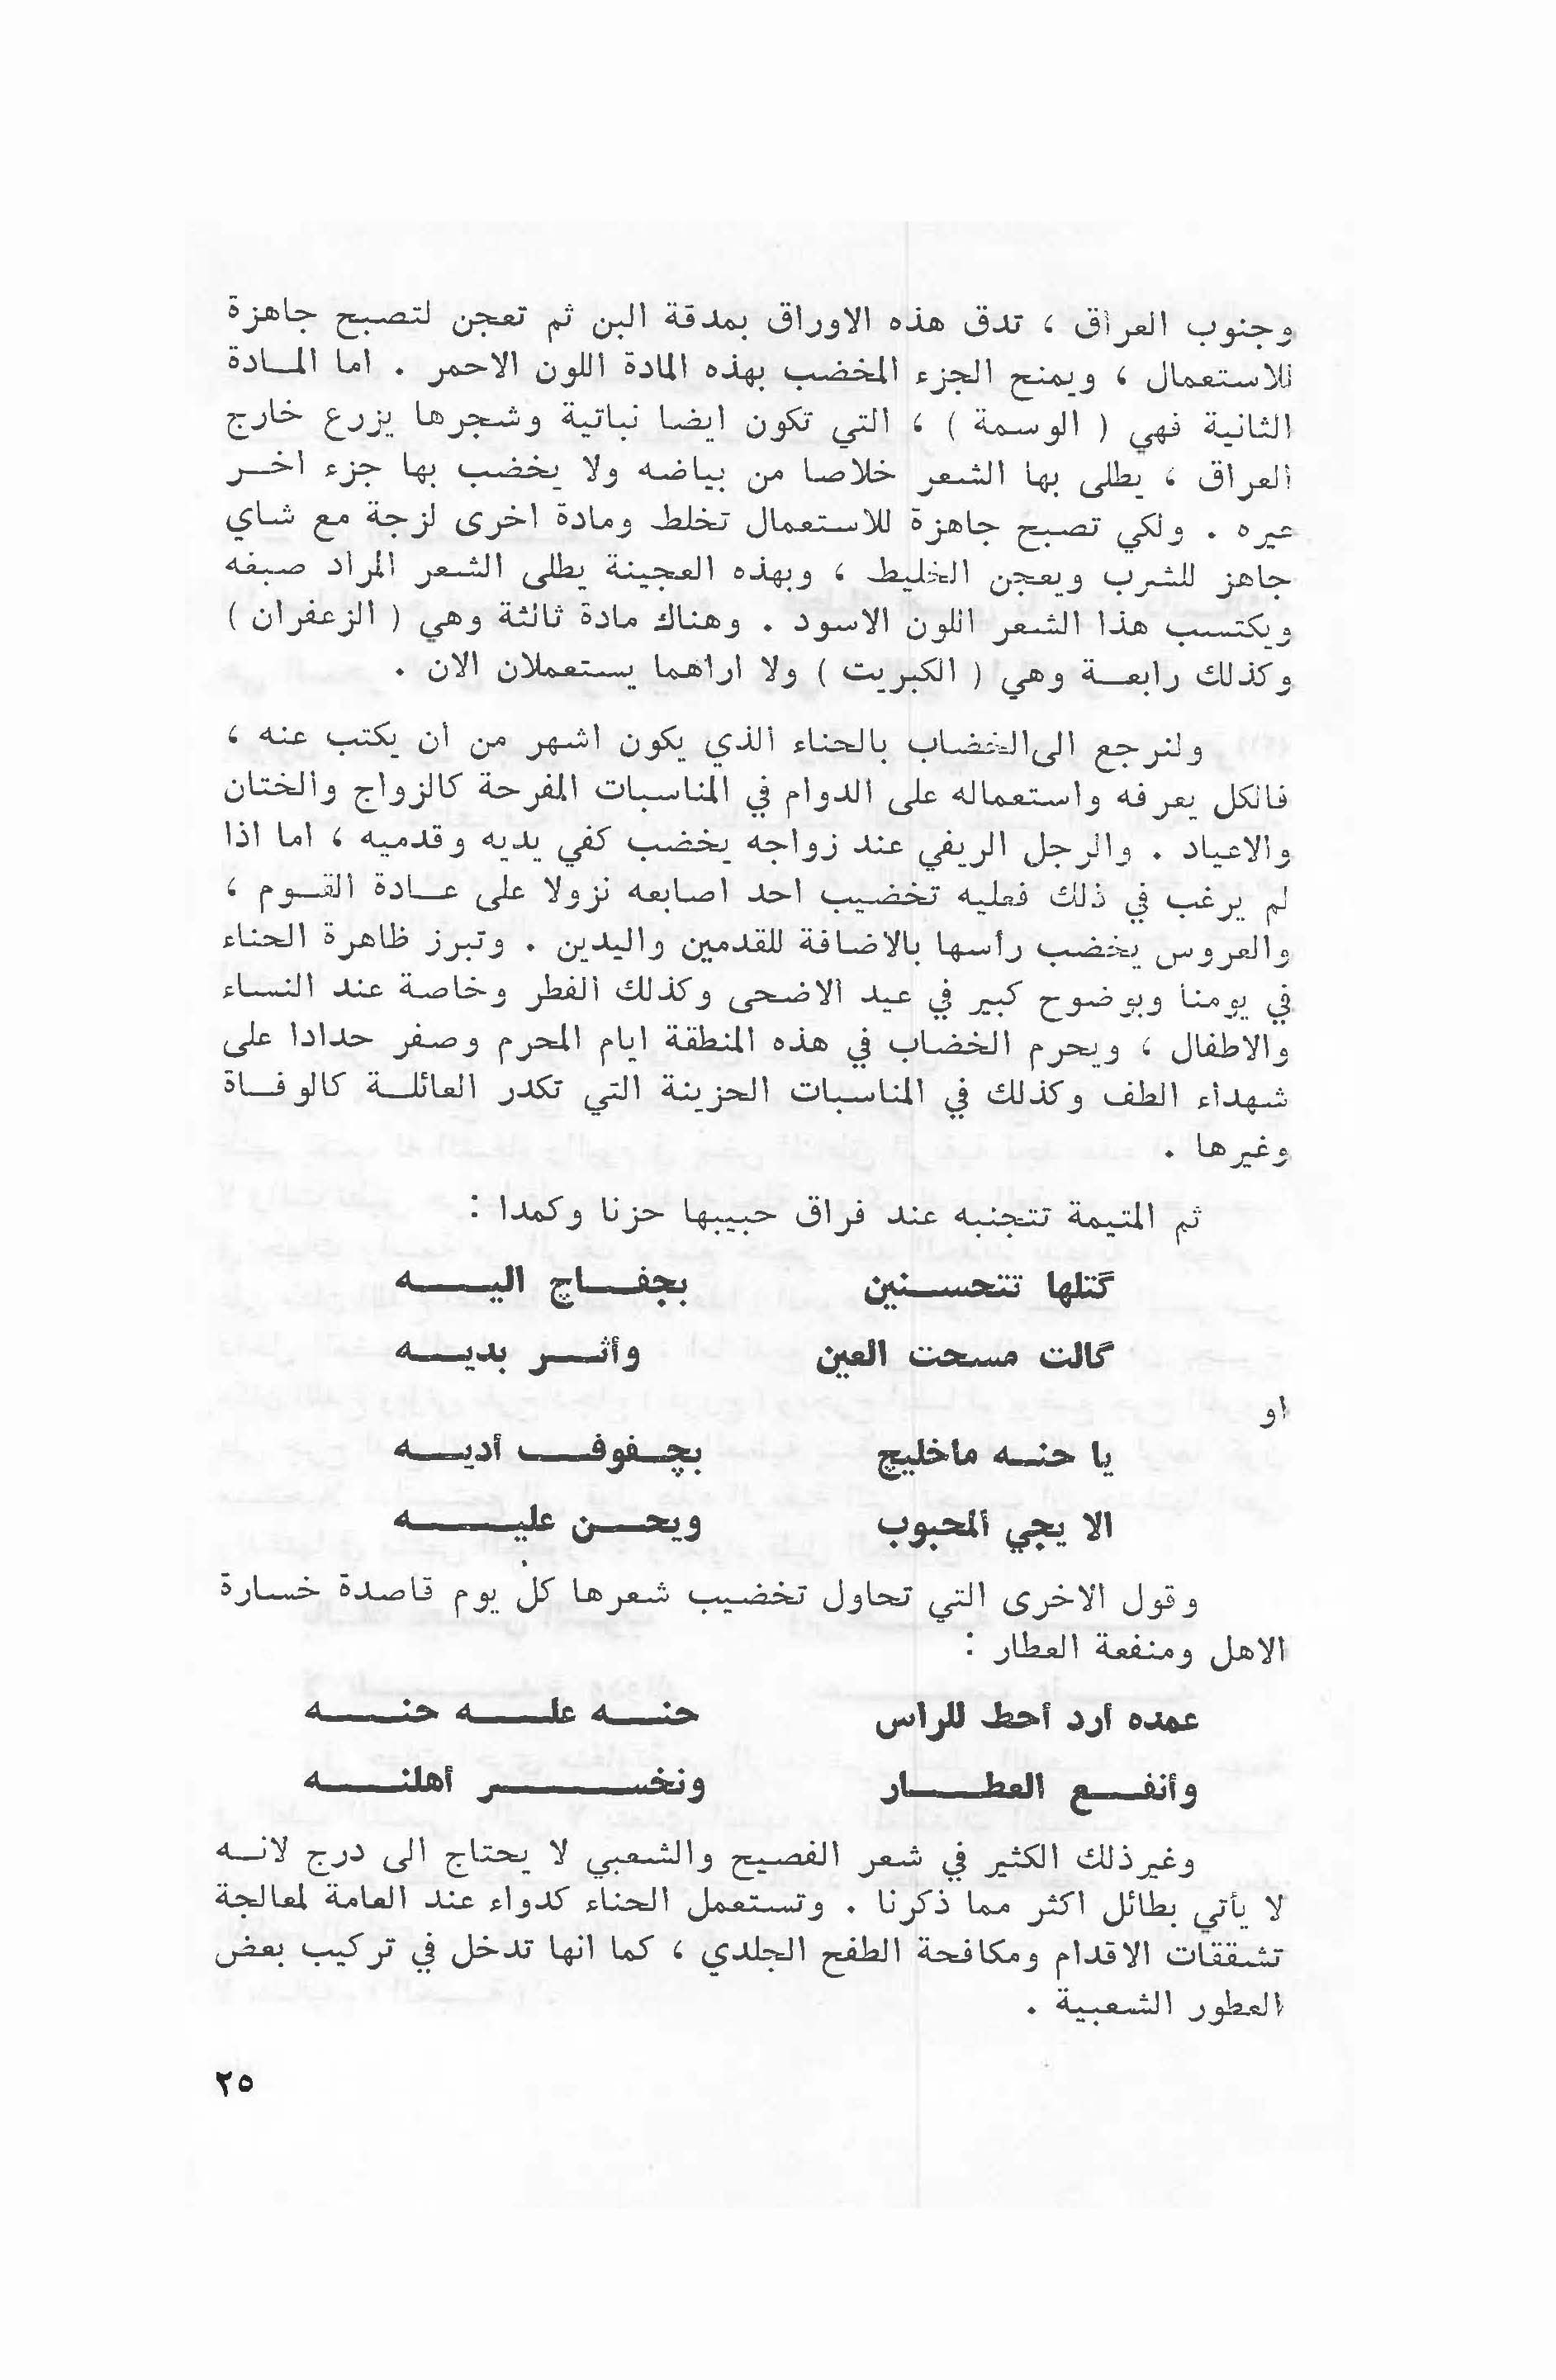 وجنوب العراق ، تدق هذه الاوراق بمدقة البن ثم تعجن لتصبح جاهزة
للاستعمال ، ويمنح الجزء المخضب بهذه المادة اللون الاحمر . اما المـادة
الثانية فهي ( الوسمة ) ، التي تكون ايضا نباتية وشجرها يزرع خارج
العراق ، يطلى بها الشعر خلاصا من بياضه ولا يخضب بها جزء اخـر
غيره . ولكي تصبح جاهزة للاستعمال تخلط ومادة اخرى لزجة مع شاي
جاهز للشرب ويعجن الخليط ، وبهذه العجينة يطلى الشعر المراد صبغه
ويكتسب هذا الشعر اللون الاسود . وهناك مادة ثالثة وهي ( الزعفران )
وكذلك رابعـة وهي ( الكبريت ) ولا اراهما يستعملان الان .
ولنرجع الى الخضاب بالحناء الذي يكون اشهر من ان يكتب عنه ،
فالكل يعرفه واستعماله على الدوام في المناسبات المفرحة كالزواج والختان
والاعياد . والرجل الريفي عند زواجه يخضب كفي يديه وقدميه ، اما اذا
لم يرغب في ذلك فعليه تخضيب احد اصابعه نزولا على عـادة القـوم ،
والعروس يخضب رأسها بالاضافة للقدمين واليدين . وتبرز ظاهرة الحناء
في يومنا وبوضوح كبير في عيد الاضحى وكذلك الفطر وخاصة عند النساء
والاطفال ، ويحرم الخضاب في هذه المنطقة ايام المحرم وصفر حدادا على
شهداء الطف وكذلك في المناسبات الحزينة التي تكدر العائلـة كالوفـاة
وغيرها .
ثم المتيمة تتجنبه عند فراق حبيبها حزنا وكمدا :
گتلها تتحسـنين بچفـاچ اليـــه
گالت مسحت العين وأثـر بديـه
او
يا حنـه ماخليچ بچـفوفـ أديـه
الا يجي المحبوب ويحـن عليــه
وقول الاخرى التي تحاول تخضيب شعرها كل يوم قاصدة خسارة
الاهل ومنفعة العطار :
عمده أرد أحط للراس حنـه علـه حنـه
وأنفـع العطـار ونخسـر أهلنـه
وغيرذلك الكثير في شعر الفصيح والشعبي لا يحتاج الى درج لانـه
لا يأتي بطائل اكثر مما ذكرنا . وتستعمل الحناء كدواء عند العامة لمعالجة
تشققات الاقدام ومكافحة الطفح الجلدي ، كما انها تدخل في تركيب بعض
العطور الشعبية .
٢٥